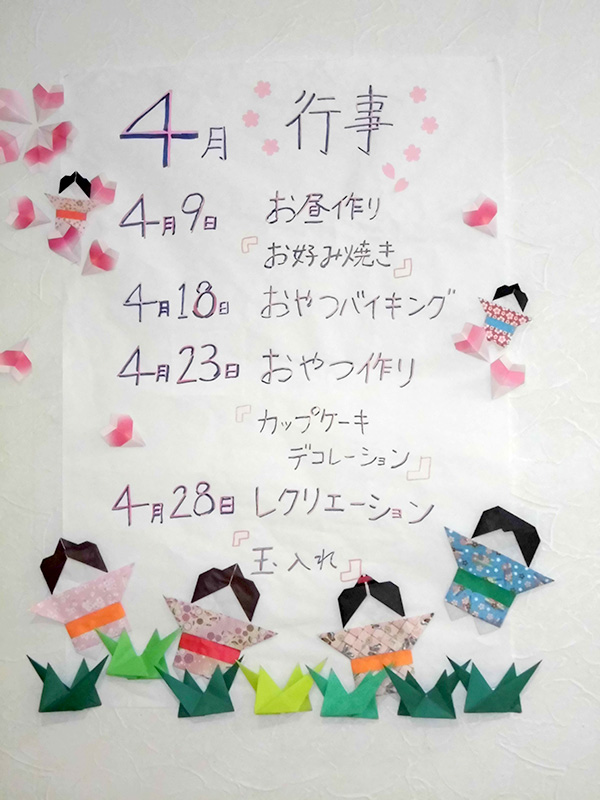 4月 行事
4月9日 お昼作り
『お好み焼き』
4月18日 おやつバイキング
4月23日 おやつ作り
『カップケーキ
デコレーション』
4月28日 レクリエーション
『玉入れ』